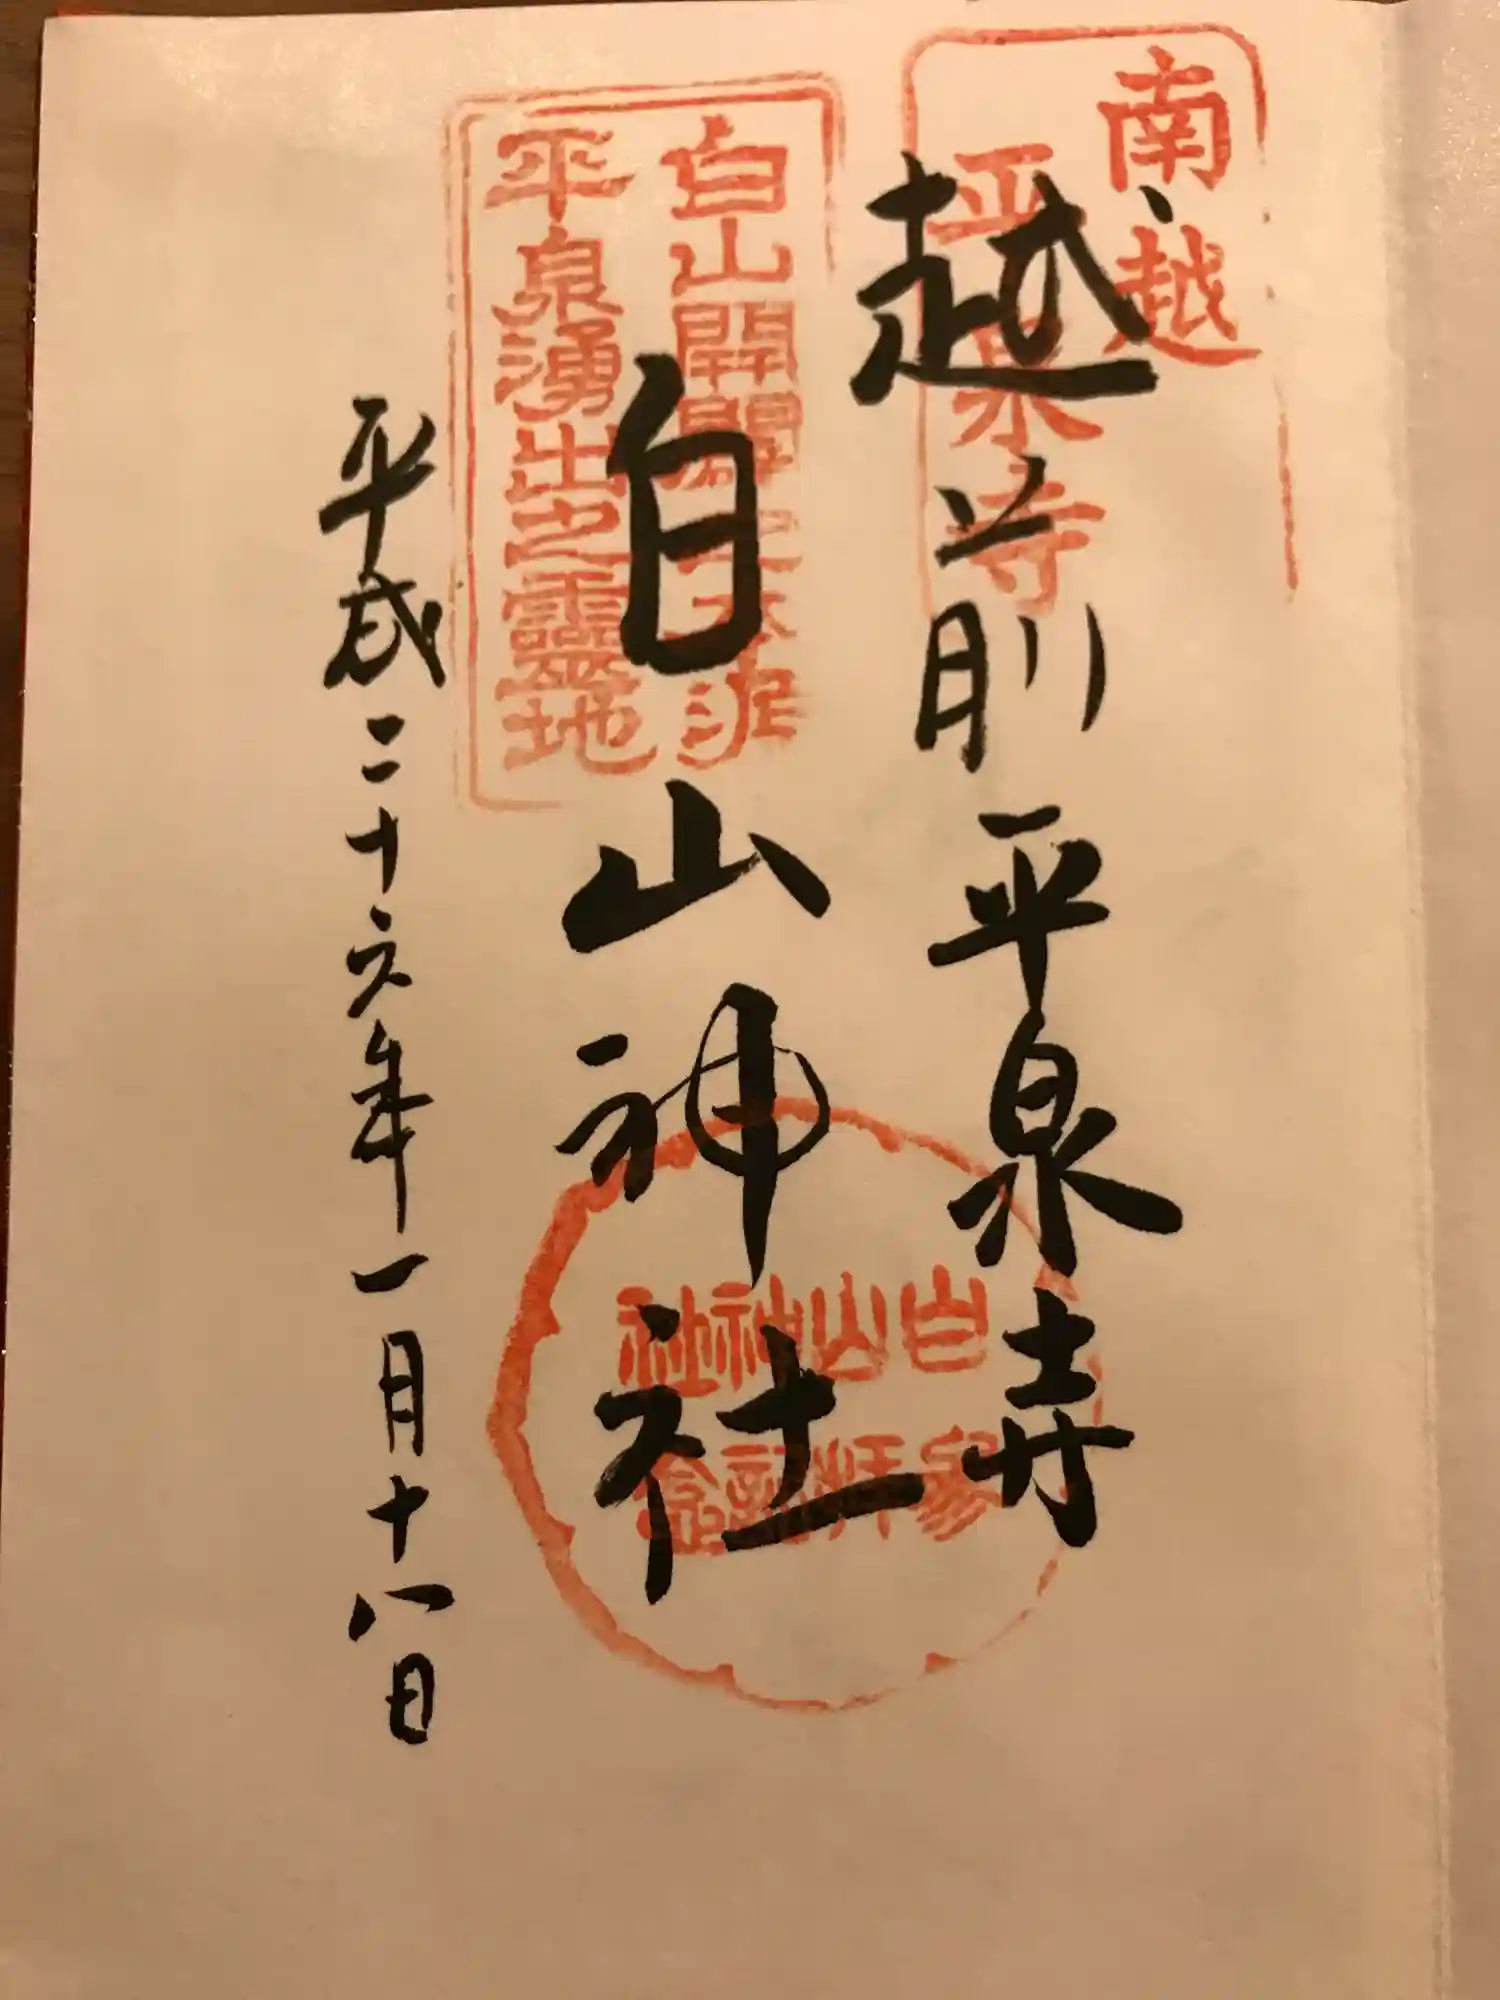 南越
平泉寺
越前平泉寺
白山開闢之本
平泉湧出之靈地
白山神社
白山神社
参拝記念
平成二十六年一月十八日